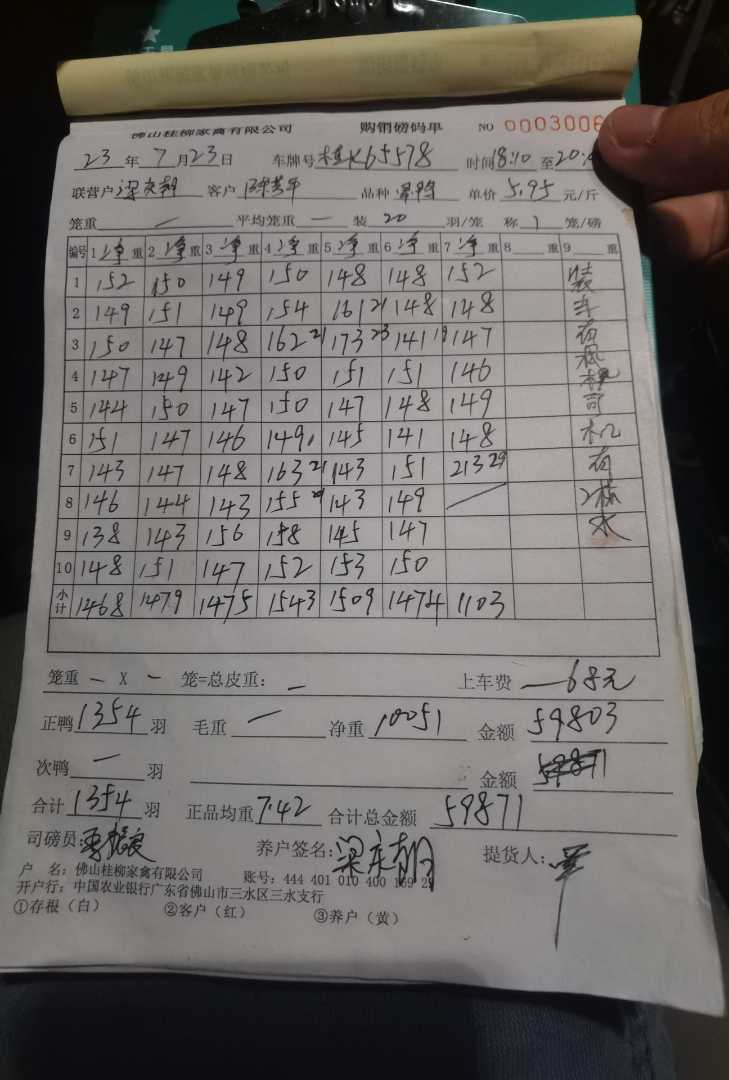 佛山桂柳家禽有限公司 购销磅码单 NO 0003006
23 年 7 月 23 日 车牌号 桂K65578 时间 18:10 至 20:
联营户 梁庆朝 客户 品种 单价 5.95 元/斤
笼重 — 平均笼重 — 装 20 羽/笼 称 1 笼/磅
编号 1 净 重 2 净 重 3 净 重 4 净 重 5 净 重 6 净 重 7 净 重 8 重 9 重
1 152 150 149 150 148 148 152 装
2 149 151 149 154 161 21 148 148 车
3 150 147 148 162 21 173 23 141 19 147 有
4 147 149 142 150 151 151 146
5 144 150 147 150 147 148 149 司
6 151 147 146 149 145 141 148 机
7 143 147 148 163 21 143 151 213 29 有
8 146 144 143 155 143 149
9 138 143 156 158 145 147 水
10 148 151 147 152 153 150
小计 1468 1479 1475 1543 1509 1474 1103
笼重 — X — 笼=总皮重: — 上车费 — 68元
正鸭 1354 羽 毛重 — 净重 10051 金额 59803
次鸭 — 羽 金额
合计 1354 羽 正品均重 7.42 合计总金额 59871
司磅员: 养户签名: 梁庆朝 提货人:
户 名: 佛山桂柳家禽有限公司 账号: 444 401 010 400 169 29
开户行: 中国农业银行广东省佛山市三水区三水支行
①存根(白) ②客户(红) ③养户(黄)